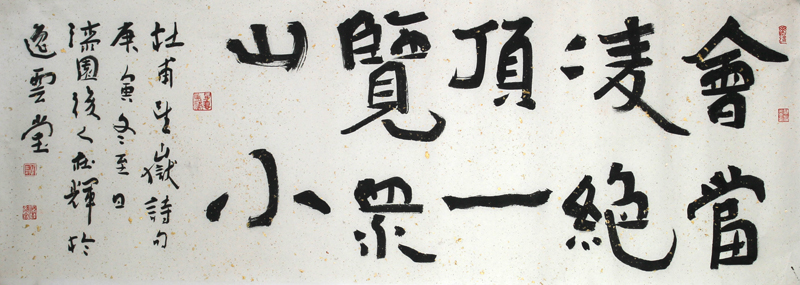 會當
凌絕
頂一
覽眾
山小
杜甫望嶽詩句
庚寅冬至日
園後人輝於
逸雲堂